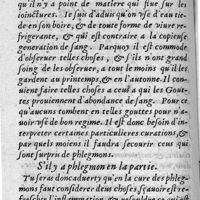 qu'il n'y a point de matiere qui flue sur les
ioinctures. Ie suis d'aduis qu'on vse d'eau tie-
de en son boire, & de toute forme de viure re-
frigerante, & qui est contraire a la copieuse
generation de sang. Parquoy il est commode
d'obseruer telles choses, & s'ils n'ont grand
soing de les obseruer, a tout le moins qu'il les
gardent au printemps, & en l'autonne. Il con-
uient faire telles choses a ceux a qui les Gout-
tes prouiennent d'abondance de sang. Pour ce
qu'aucuns tombent en telles gouttes pour n'a-
uoir vsé de bon regime. Il est donc besoin d'in-
terpreter certaines particulieres curations, &
par quels moiens il faudra secourir ceux qui
sont surpris de phlegmons.
S'il y a phlegmon en la partie.
Tu seras donc aduerty qu'en la cure des phleg-
mons faut considerer deux choses, sçauoir est re-